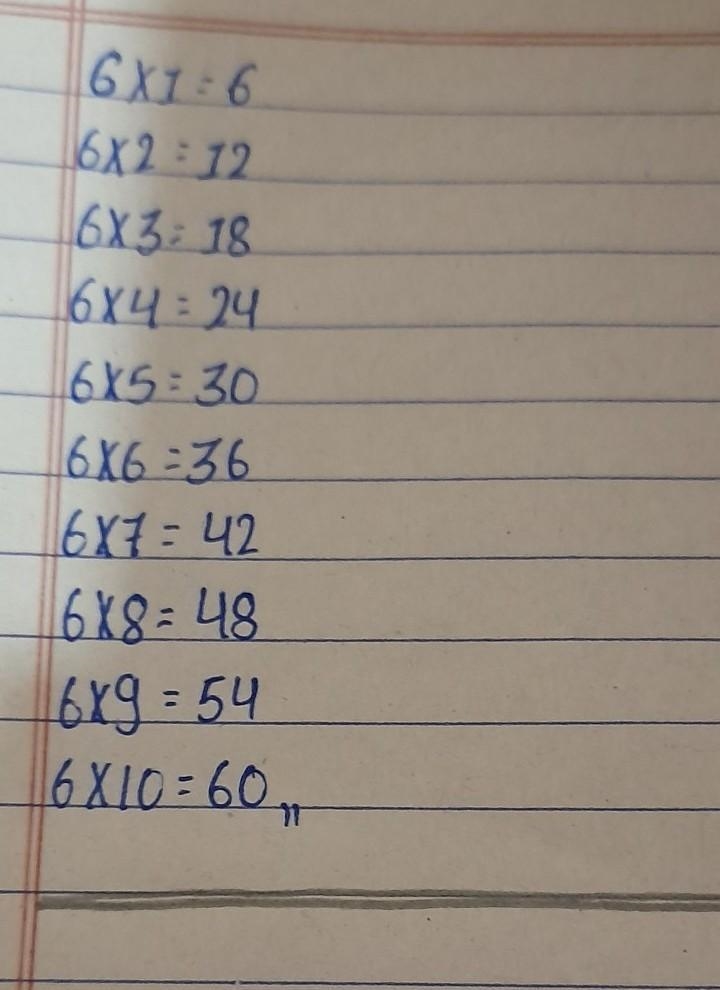 6X1=6
6X2=12
6X3=18
6X4=24
6X5=30
6X6=36
6X7=42
6X8=48
6X9=54
6X10=60„